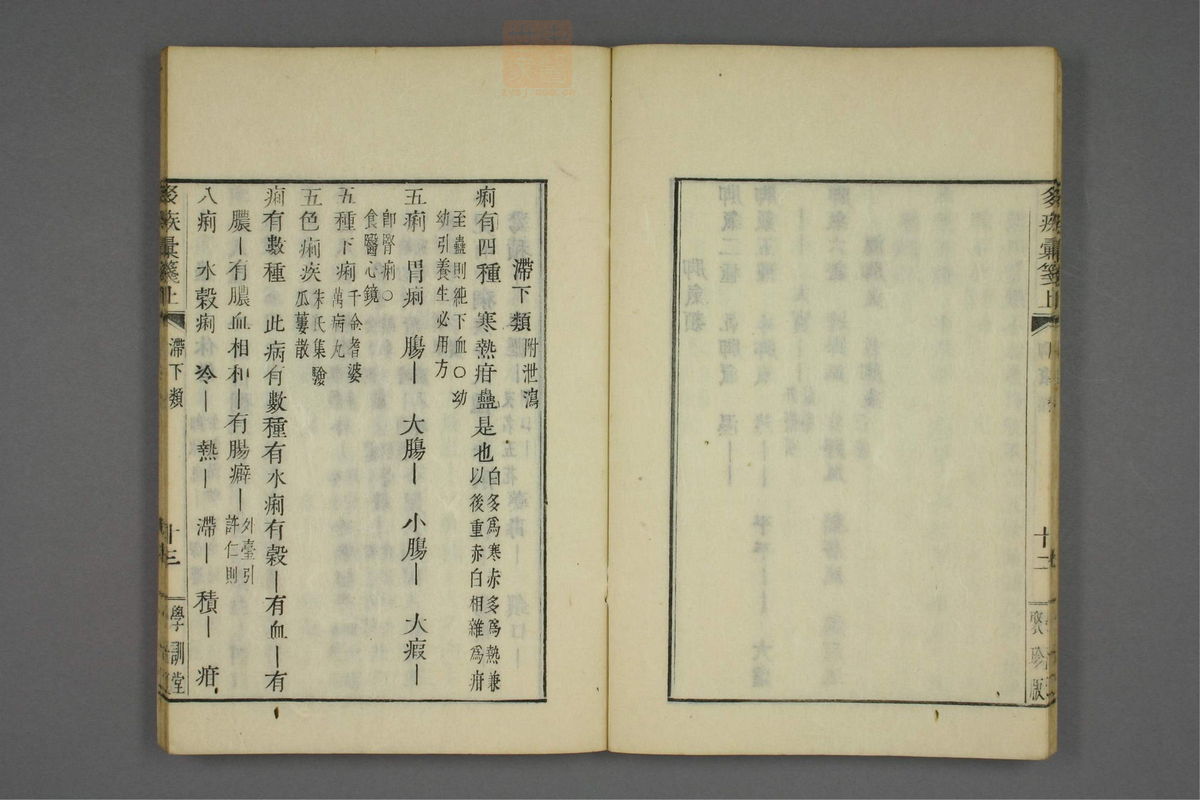 疾彙箋上
十二
聚珍版
滯下類附泄瀉
痢有四種 寒熱疳蠱是也白多爲寒赤多爲熱兼
以後重赤白相雜爲疳
至蠱則純下血○幼
幼引養生必用方
五痢 胃痢 腸｜ 大腸｜ 小腸｜ 大瘕｜
卽腎痢○
食醫心鏡
五種下痢千金耆婆
萬病丸
五色痢疾朱氏集驗
瓜蔞散
痢有數種 此病有數種有水痢有穀｜有血｜有
膿｜有膿血相和｜有腸癖｜外臺引
許仁則
八痢 水穀痢 冷｜ 熱｜ 滯｜ 積｜ 疳
疾彙箋上
滯下類
十三
學訓堂